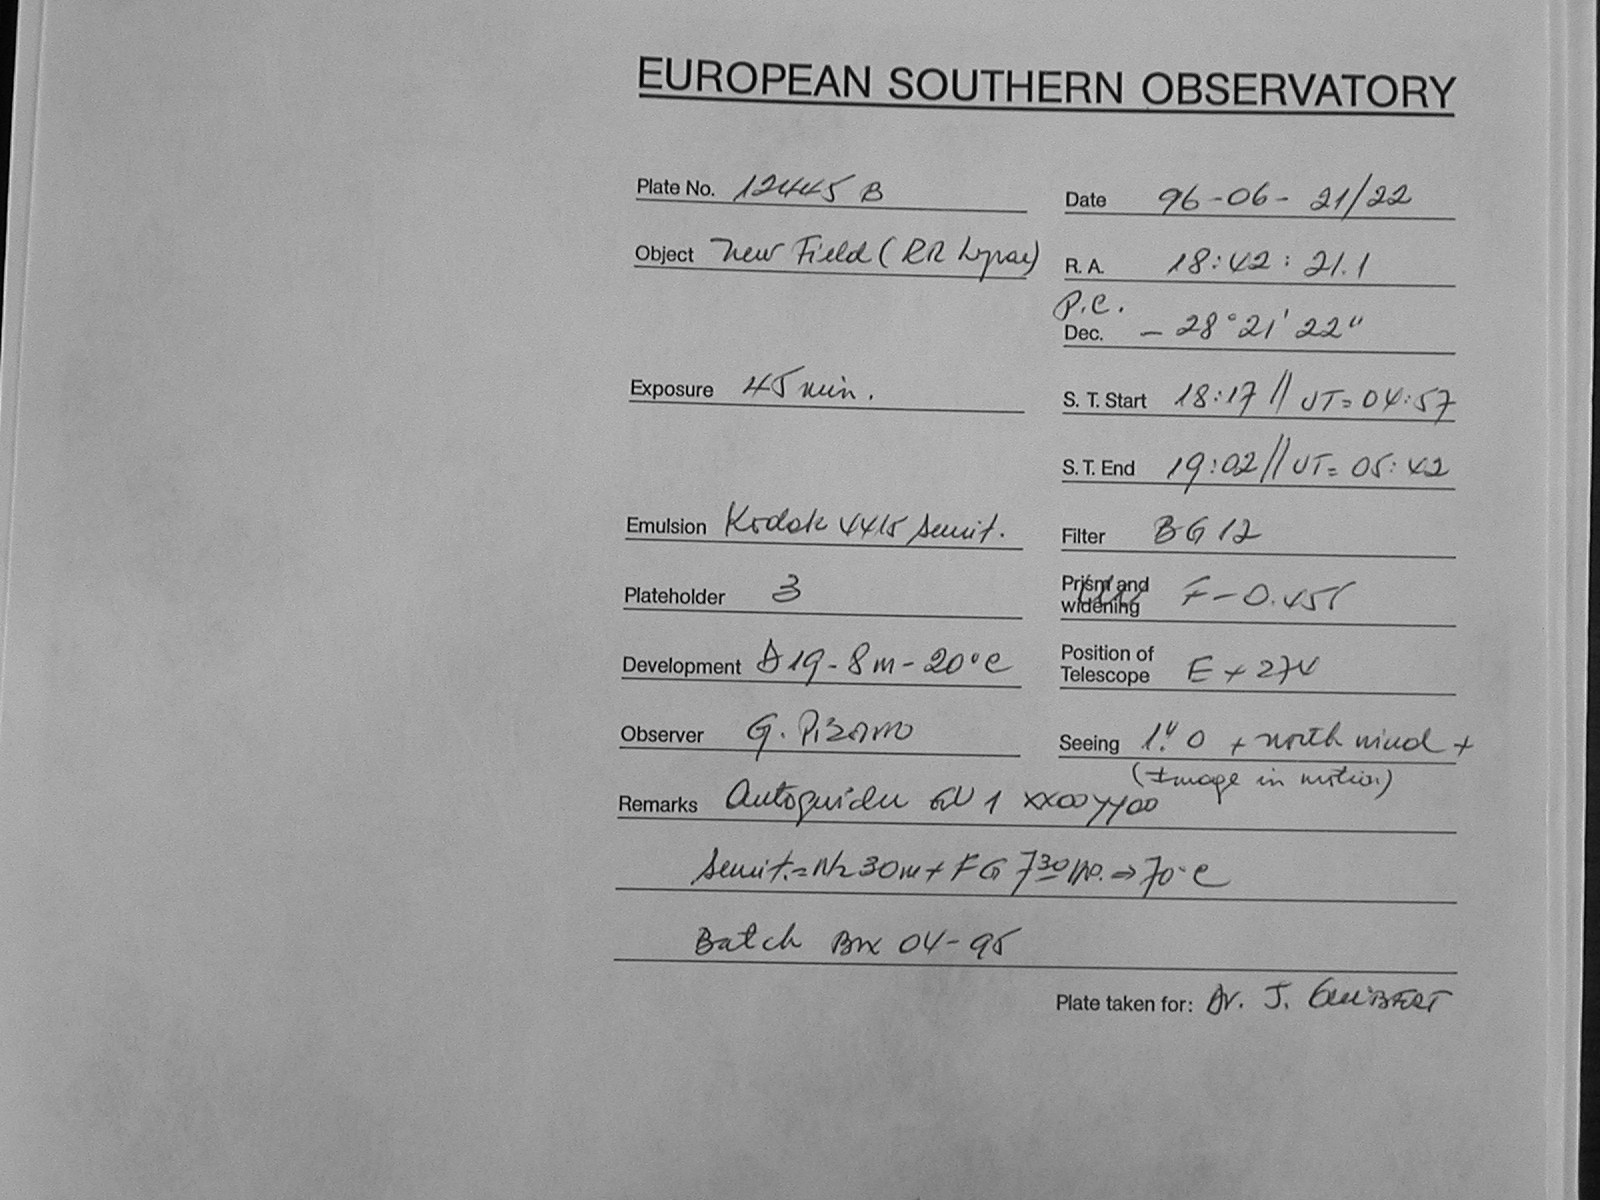 EUROPEAN SOUTHERN OBSERVATORY
Plate No. 12445 B
Date 96-06-21/22
Object New Field (RR Lyrae)
R. A. 18:42:21.1
P.C.
Dec. - 28°21'22"
Exposure 45 min.
S. T. Start 18:17 // UT= 04:57
S. T. End 19:02 // UT= 05:42
Emulsion Kodak 4415 sensit.
Filter BG 12
Plateholder 3
Prism and widening F-0.455
Development D19-8m-20°C
Position of Telescope E + 274
Observer G. Pizarro
Seeing 1."0 + north wind +
(Image in motion)
Remarks Autoguider GU 1 XX00YY00
Sensit.=N2 30m + FG 7 30 => 70°C
Batch Box 04-95
Plate taken for: Dr. J. GUIBERT